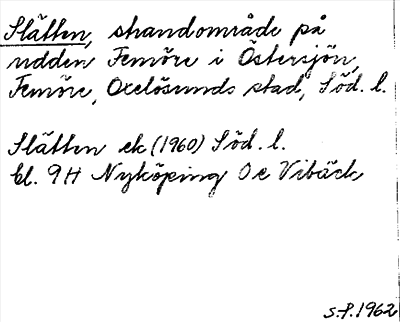 Slätten, strandområde på
udden Femöre i Östersjön,
Femöre, Oxelösunds stad, Söd. l.
Slätten ek (1960) Söd. l.
bl. 9H Nyköping Oe Vibäck
S.P. 1962